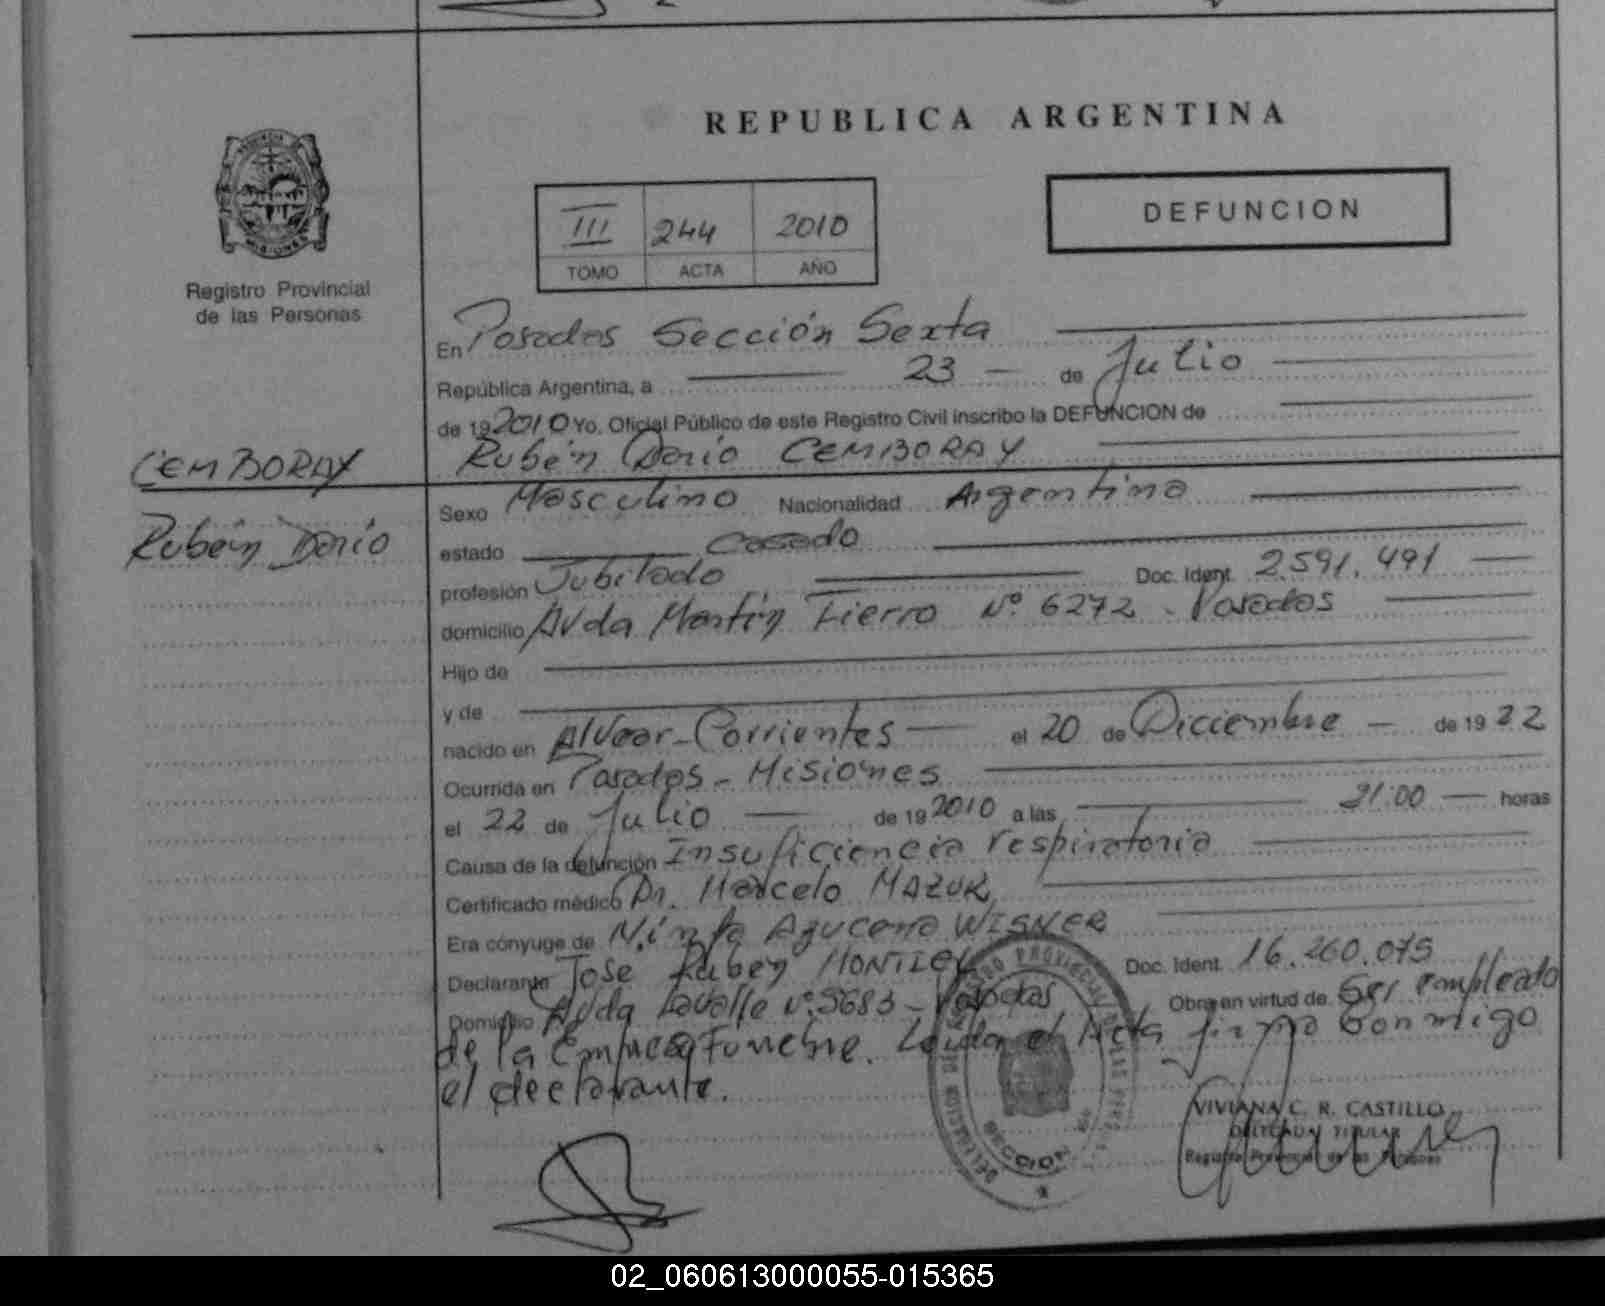 REPUBLICA ARGENTINA
III 244 2010
TOMO ACTA AÑO
DEFUNCION
PROVINCIA DE MISIONES
Registro Provincial
de las Personas
En Posadas Sección Sexta
República Argentina, a 23 de Julio
de 192010 Yo, Oficial Público de este Registro Civil inscribo la DEFUNCION de
Rubén Darío CEMBORAY
CEMBORAY
Rubén Darío
Sexo Masculino Nacionalidad Argentina
estado Casado
profesión Jubilado Doc. Ident. 2.591.491
domicilio AVda Martín Fierro Nº 6272 - Posadas
Hijo de
y de
nacido en Alvear - Corrientes el 20 de Diciembre de 1922
Ocurrida en Posadas - Misiones
el 22 de Julio de 192010 a las 21:00 horas
Causa de la defunción Insuficiencia respiratoria
Certificado médico Dr. Marcelo MAZUR
Era cónyuge de Ninfa Azucena WISNER
Declarante José Rubén Doc. Ident. 16.260.075
Domicilio Avda Lavalle Nº 5683 - Posadas Obra en virtud de Ser empleado
de la Empresa Funebre. Leida el Acta firma conmigo
el declarante.
VIVIANA C. R. CASTILLO
DELEGADA TITULAR
Registro Provincial de las Personas
SECCION
02_060613000055-015365